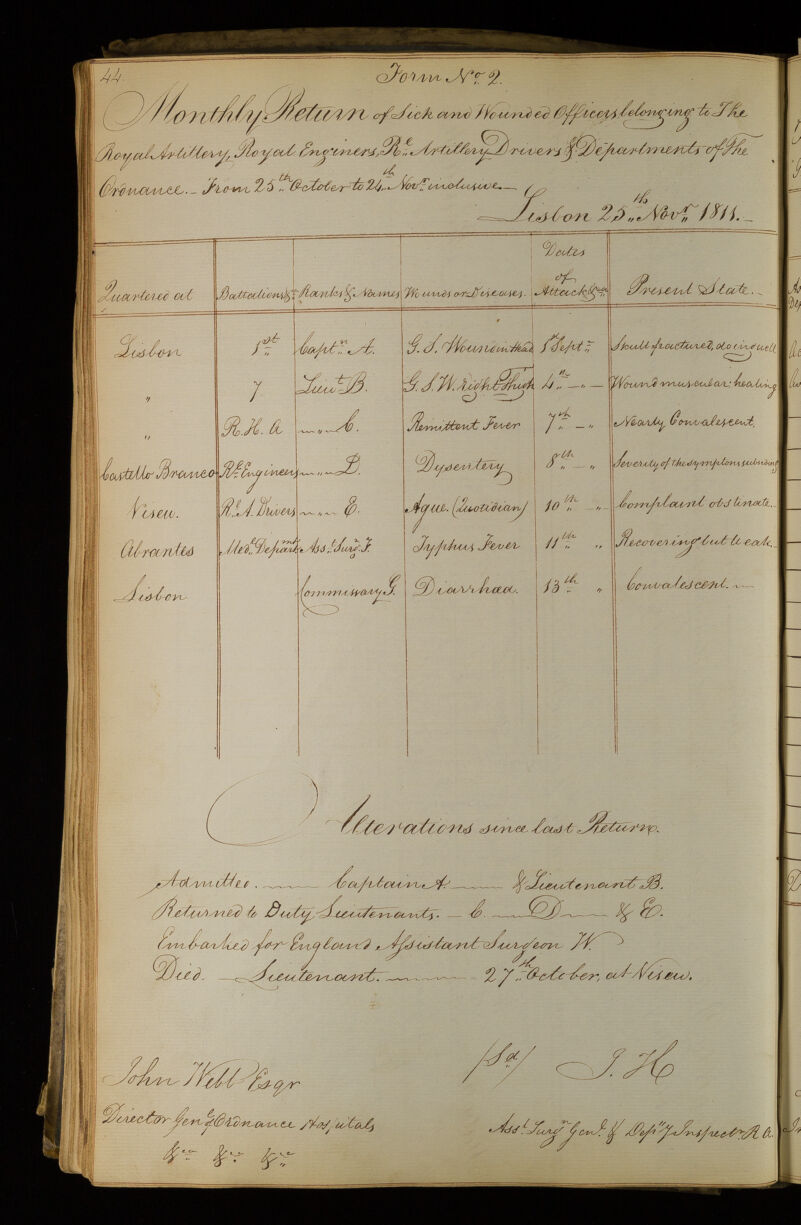 44.
Form No. 2.
Monthly Return of Sick and Wounded Officers belonging to The
Royal Artillery, Royal Enginers, Rl. Artillery Drivers & Departments of The
Ordnance. - From 25th October to 24th Novr. inclusive. -
Lisbon 25th Novr. 1811. -
Quartered at Battalions &c Ranks & Names Wounds or Diseases. Dates of Attack &c Present State. -
Lisbon 1st Captn. A. G. S. Wound in Head 1st Septr. Skull fractured, doing well
" 7 Lieut. B. G. S. W. right Thigh 4th - " - Wound muscular: healing
" R. H. A - " - C. Remittent Fever 7th - " Nearly Convalescent.
Castello Branco Rl. Engineers - " - D. Dysentery 8th - " Severity of the symptoms subsiding
Viseu. Rl. A. Drivers - " - E. Ague. (Quotidian) 10th - " - Complaint obstinate. -
Abrantes Medl. Departmt. Asst. Surgn. F. Typhus Fever 11th " Recovering but Weak. -
Lisbon Commissary G. Diarrhœa. 13th " Convalescent. -
Alterations since last Return.
Admitted. - Captain A - & Lieutenant B.
Returned to Duty Lieutenants. - C. - D - & E.
Embarked for England Assistant Surgeon W.
Died. - Lieutenant. - 27th October, at Viseu.
John Webb Esqr
(Sd) J. H
Director Genl. Ordnance Hospitals
Asst. Surgn. Genl. & Depy. Inspectr. R A.
&c &c &c